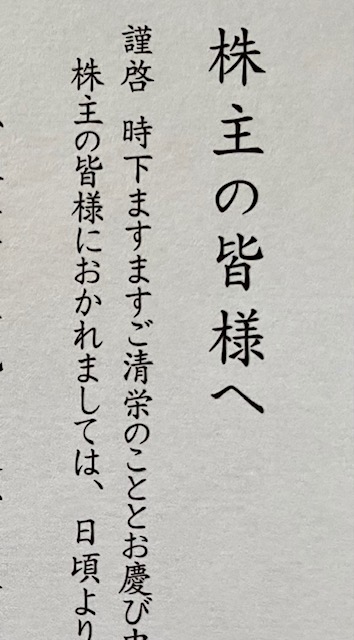 株主の皆様へ
謹啓 時下ますますご清栄のこととお慶び
株主の皆様におかれましては、日頃より